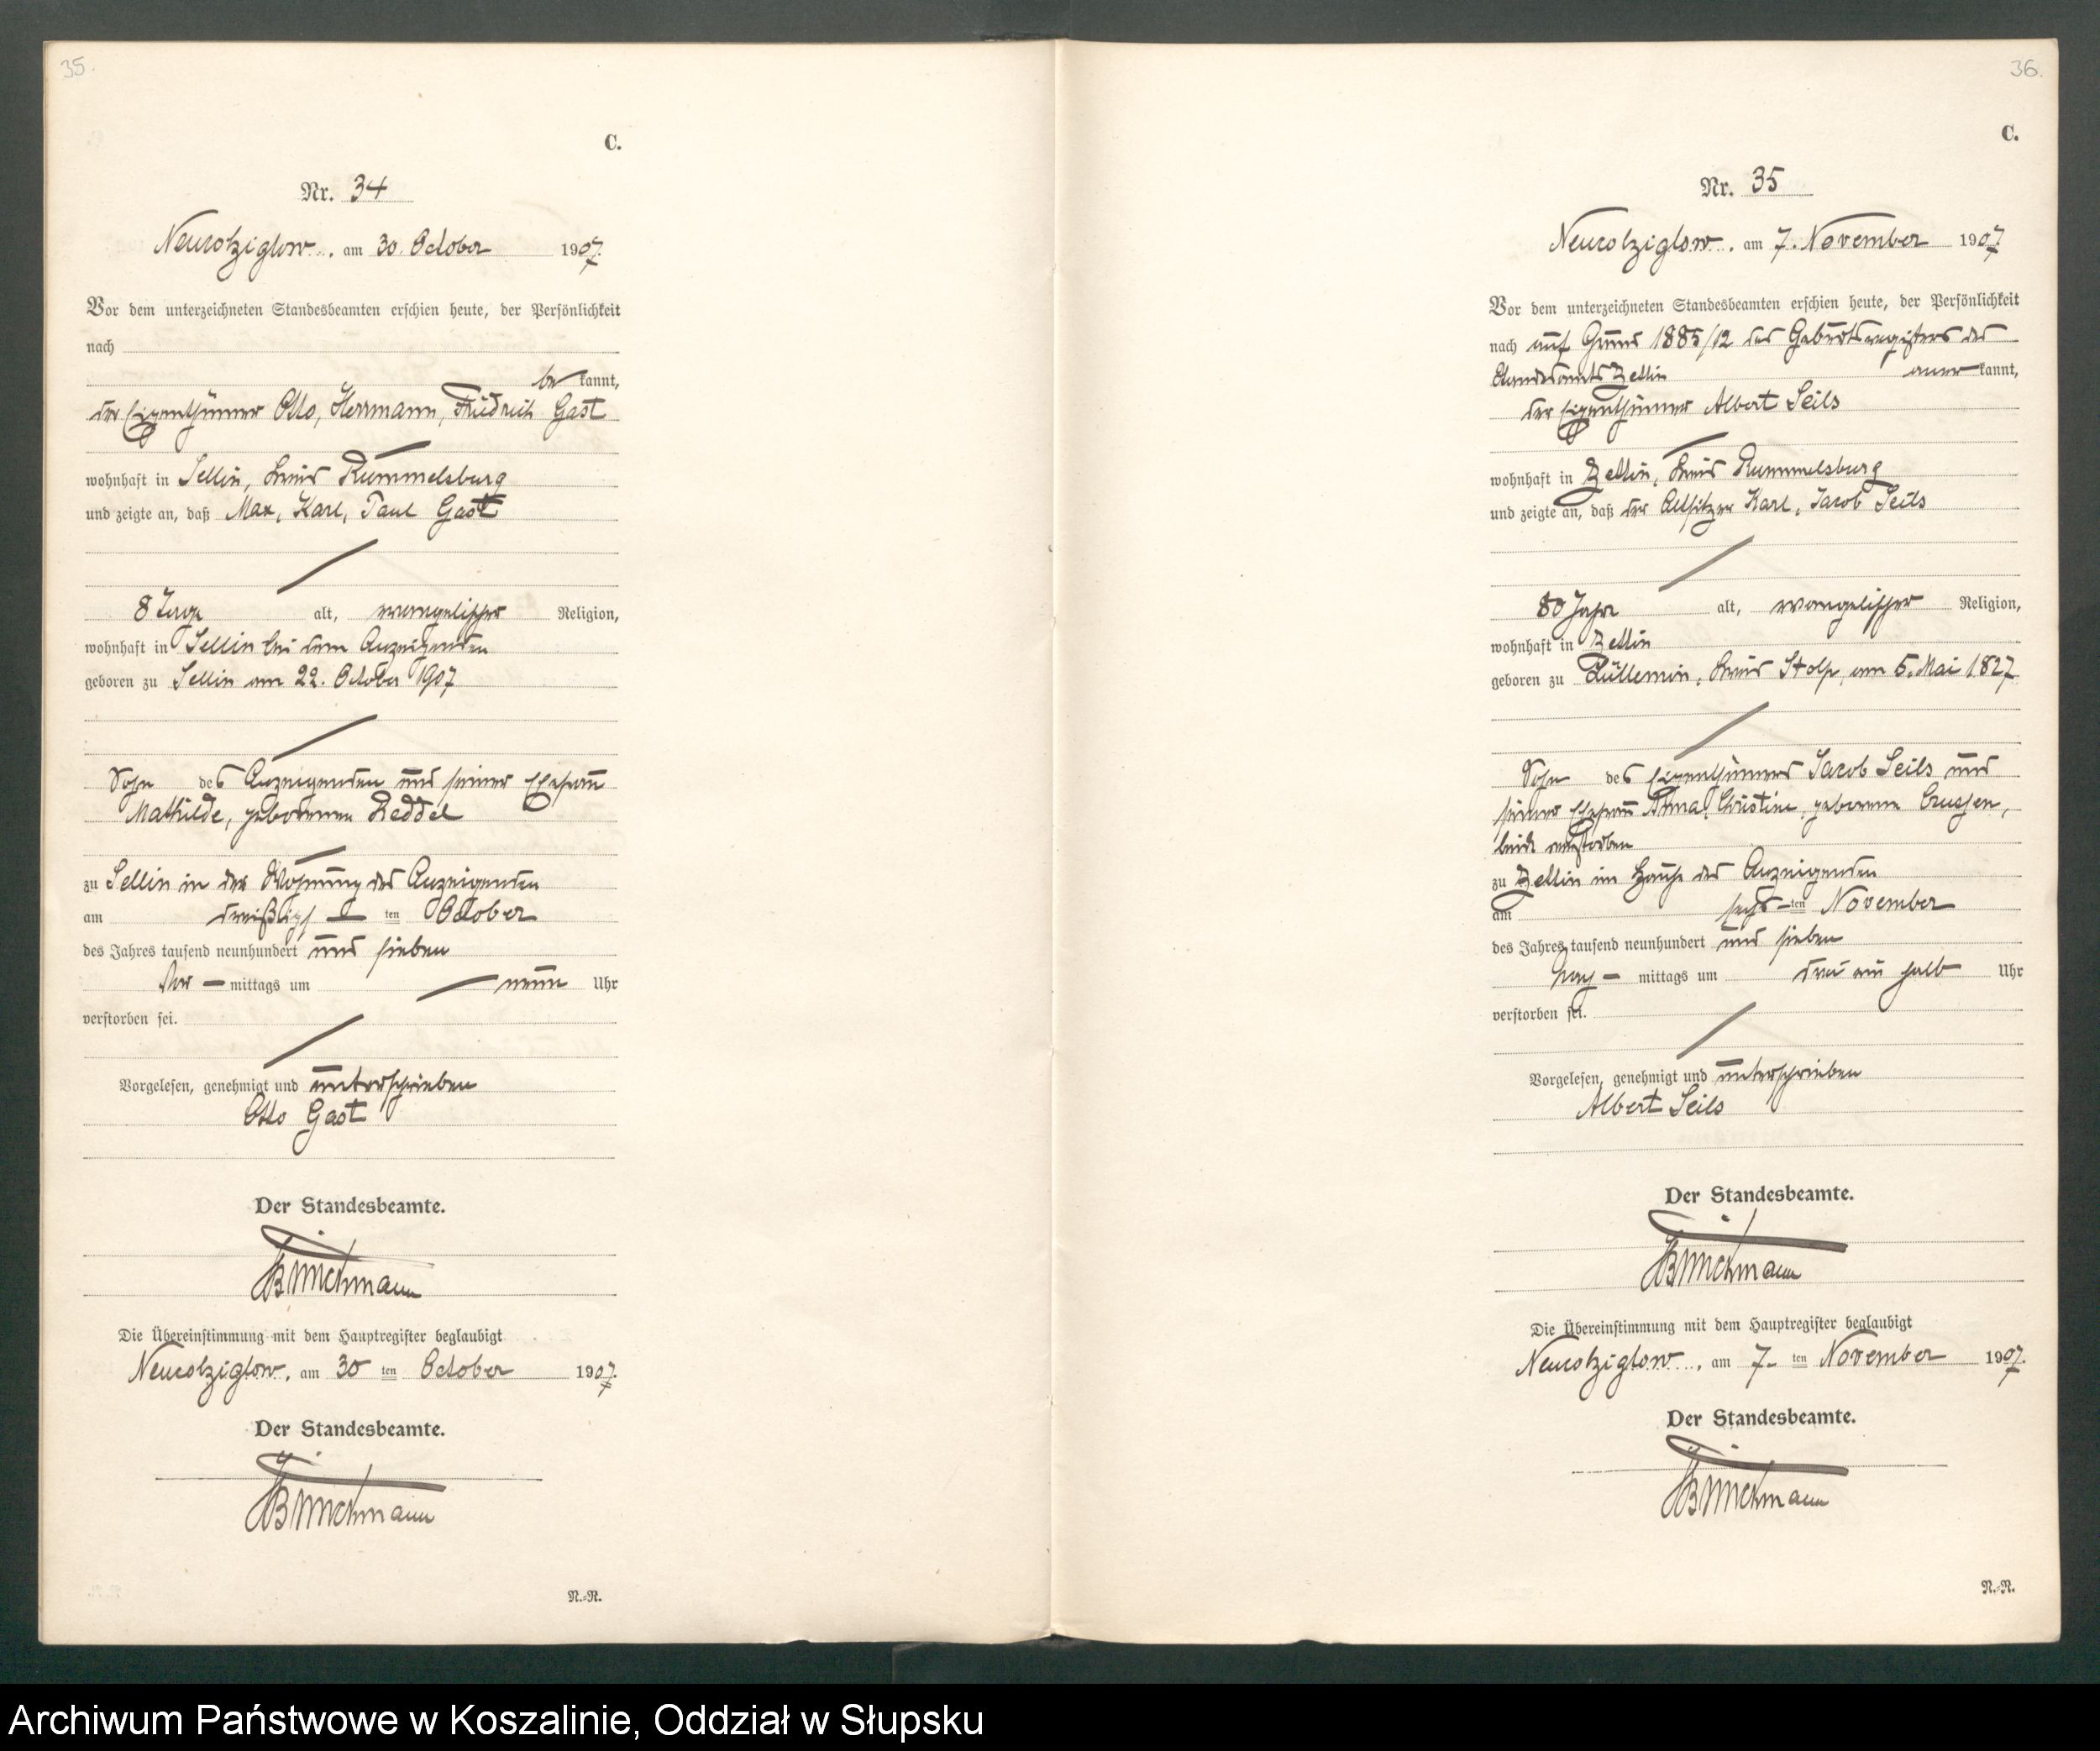 35.
C.
Nr. 34
Neukolziglow, am 30. October 1907.
Vor dem unterzeichneten Standesbeamten erschien heute, der Persönlichkeit
nach
be kannt,
der Eigenthümer Otto, Herrmann, Friedrich Gast
wohnhaft in Sellin, Kreis Rummelsburg
und zeigte an, daß Max, Karl, Paul Gast
8 Tage alt, evangelischer Religion,
wohnhaft in Sellin bei dem Anzeigenden
geboren zu Sellin am 22. October 1907
Sohn des Anzeigenden und seiner Ehefrau
Mathilde, geborenen Reddel
zu Sellin in der Wohnung des Anzeigenden
am dreißigs ten October
des Jahres tausend neunhundert und sieben
Vor mittags um neun Uhr
verstorben sei.
Vorgelesen, genehmigt und unterschrieben
Otto Gast
Der Standesbeamte.
Die Übereinstimmung mit dem Hauptregister beglaubigt
Neukolziglow, am 30 ten October 1907.
Der Standesbeamte.
N.-N.
36.
C.
Nr. 35
Neukolziglow, am 7. November 1907
Vor dem unterzeichneten Standesbeamten erschien heute, der Persönlichkeit
nach auf Grund 1885/12 des Geburtsregisters des
Standesamts Zettin aner kannt,
der Eigenthümer Albert Seils
wohnhaft in Zettin, Kreis Rummelsburg
und zeigte an, daß der Altsitzer Karl, Jacob Seils
80 Jahre alt, evangelischer Religion,
wohnhaft in Zettin
geboren zu Lüllemin, Kreis Stolp, am 5. Mai 1827
Sohn des Eigenthümers Jacob Seils und
seiner Ehefrau Anna Christine, geborene
beide verstorben
zu Zettin im Hause des Anzeigenden
am sechs ten November
des Jahres tausend neunhundert und sieben
Nach mittags um drei ein halb Uhr
verstorben sei.
Vorgelesen, genehmigt und unterschrieben
Albert Seils
Der Standesbeamte.
Die Übereinstimmung mit dem Hauptregister beglaubigt
Neukolziglow, am 7. ten November 1907.
Der Standesbeamte.
N.-N.
Archiwum Państwowe w Koszalinie, Oddział w Słupsku